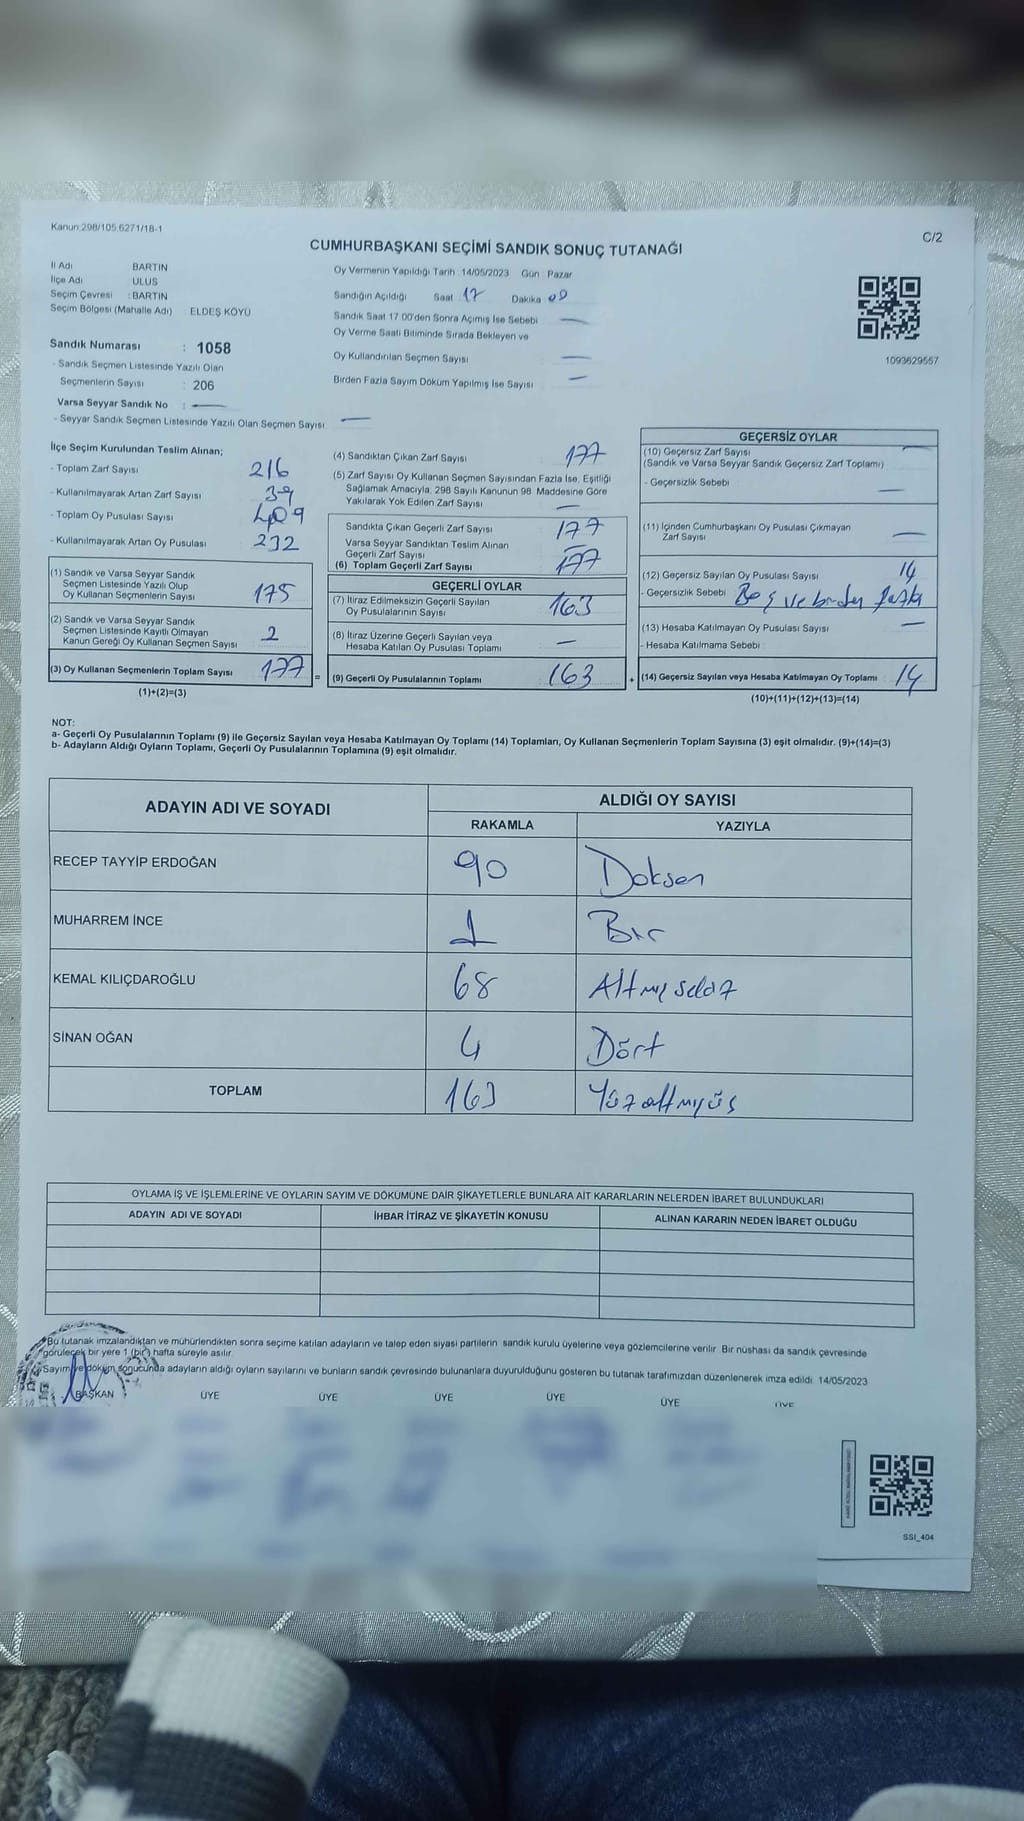 Kanun:298/105.6271/18-1
C/2
CUMHURBAŞKANI SEÇİMİ SANDIK SONUÇ TUTANAĞI
İl Adı BARTIN
İlçe Adı ULUS
Seçim Çevresi : BARTIN
Seçim Bölgesi (Mahalle Adı) : ELDEŞ KÖYÜ
Sandık Numarası : 1058
- Sandık Seçmen Listesinde Yazılı Olan
Seçmenlerin Sayısı : 206
Varsa Seyyar Sandık No : —
- Seyyar Sandık Seçmen Listesinde Yazılı Olan Seçmen Sayısı: —
Oy Vermenin Yapıldığı Tarih :14/05/2023 Gün : Pazar
Sandığın Açıldığı Saat 17 Dakika 00
Sandık Saat 17:00'den Sonra Açımış İse Sebebi : —
Oy Verme Saati Bitiminde Sırada Bekleyen ve
Oy Kullandırılan Seçmen Sayısı —
Birden Fazla Sayım Döküm Yapılmış İse Sayısı : —
1093629557
İlçe Seçim Kurulundan Teslim Alınan;
- Toplam Zarf Sayısı 216
- Kullanılmayarak Artan Zarf Sayısı 39
- Toplam Oy Pusulası Sayısı 409
- Kullanılmayarak Artan Oy Pusulası 232
(1) Sandık ve Varsa Seyyar Sandık
Seçmen Listesinde Yazılı Olup
Oy Kullanan Seçmenlerin Sayısı 175
(2) Sandık ve Varsa Seyyar Sandık
Seçmen Listesinde Kayıtlı Olmayan
Kanun Gereği Oy Kullanan Seçmen Sayısı 2
(3) Oy Kullanan Seçmenlerin Toplam Sayısı 177 =
(1)+(2)=(3)
(4) Sandıktan Çıkan Zarf Sayısı 177
(5) Zarf Sayısı Oy Kullanan Seçmen Sayısından Fazla İse, Eşitliği
Sağlamak Amacıyla, 298 Sayılı Kanunun 98. Maddesine Göre
Yakılarak Yok Edilen Zarf Sayısı —
Sandıkta Çıkan Geçerli Zarf Sayısı 177
Varsa Seyyar Sandıktan Teslim Alınan
Geçerli Zarf Sayısı —
(6) Toplam Geçerli Zarf Sayısı 177
GEÇERLİ OYLAR
(7) İtiraz Edilmeksizin Geçerli Sayılan
Oy Pusulalarının Sayısı 163
(8) İtiraz Üzerine Geçerli Sayılan veya
Hesaba Katılan Oy Pusulası Toplamı —
(9) Geçerli Oy Pusulalarının Toplamı 163 +
GEÇERSİZ OYLAR
(10) Geçersiz Zarf Sayısı —
(Sandık ve Varsa Seyyar Sandık Geçersiz Zarf Toplamı)
- Geçersizlik Sebebi —
(11) İçinden Cumhurbaşkanı Oy Pusulası Çıkmayan
Zarf Sayısı —
(12) Geçersiz Sayılan Oy Pusulası Sayısı 14
- Geçersizlik Sebebi Boş ve birden fazla
(13) Hesaba Katılmayan Oy Pusulası Sayısı —
- Hesaba Katılmama Sebebi
(14) Geçersiz Sayılan veya Hesaba Katılmayan Oy Toplamı 14
(10)+(11)+(12)+(13)=(14)
NOT:
a- Geçerli Oy Pusulalarının Toplamı (9) ile Geçersiz Sayılan veya Hesaba Katılmayan Oy Toplamı (14) Toplamları, Oy Kullanan Seçmenlerin Toplam Sayısına (3) eşit olmalıdır. (9)+(14)=(3)
b- Adayların Aldığı Oyların Toplamı, Geçerli Oy Pusulalarının Toplamına (9) eşit olmalıdır.
ADAYIN ADI VE SOYADI ALDIĞI OY SAYISI
RAKAMLA YAZIYLA
RECEP TAYYİP ERDOĞAN 90 Doksan
MUHARREM İNCE 1 Bir
KEMAL KILIÇDAROĞLU 68 Altmışsekiz
SİNAN OĞAN 4 Dört
TOPLAM 163 Yüzaltmışüç
OYLAMA İŞ VE İŞLEMLERİNE VE OYLARIN SAYIM VE DÖKÜMÜNE DAİR ŞİKAYETLERLE BUNLARA AİT KARARLARIN NELERDEN İBARET BULUNDUKLARI
ADAYIN ADI VE SOYADI İHBAR İTİRAZ VE ŞİKAYETİN KONUSU ALINAN KARARIN NEDEN İBARET OLDUĞU
Bu tutanak imzalandıktan ve mühürlendikten sonra seçime katılan adayların ve talep eden siyasi partilerin sandık kurulu üyelerine veya gözlemcilerine verilir. Bir nüshası da sandık çevresinde
görülecek bir yere 1 (bir) hafta süreyle asılır.
Sayım ve döküm sonucunda adayların aldığı oyların sayılarını ve bunların sandık çevresinde bulunanlara duyurulduğunu gösteren bu tutanak tarafımızdan düzenlenerek imza edildi. 14/05/2023
BAŞKAN ÜYE ÜYE ÜYE ÜYE ÜYE ÜYE
SSI_404